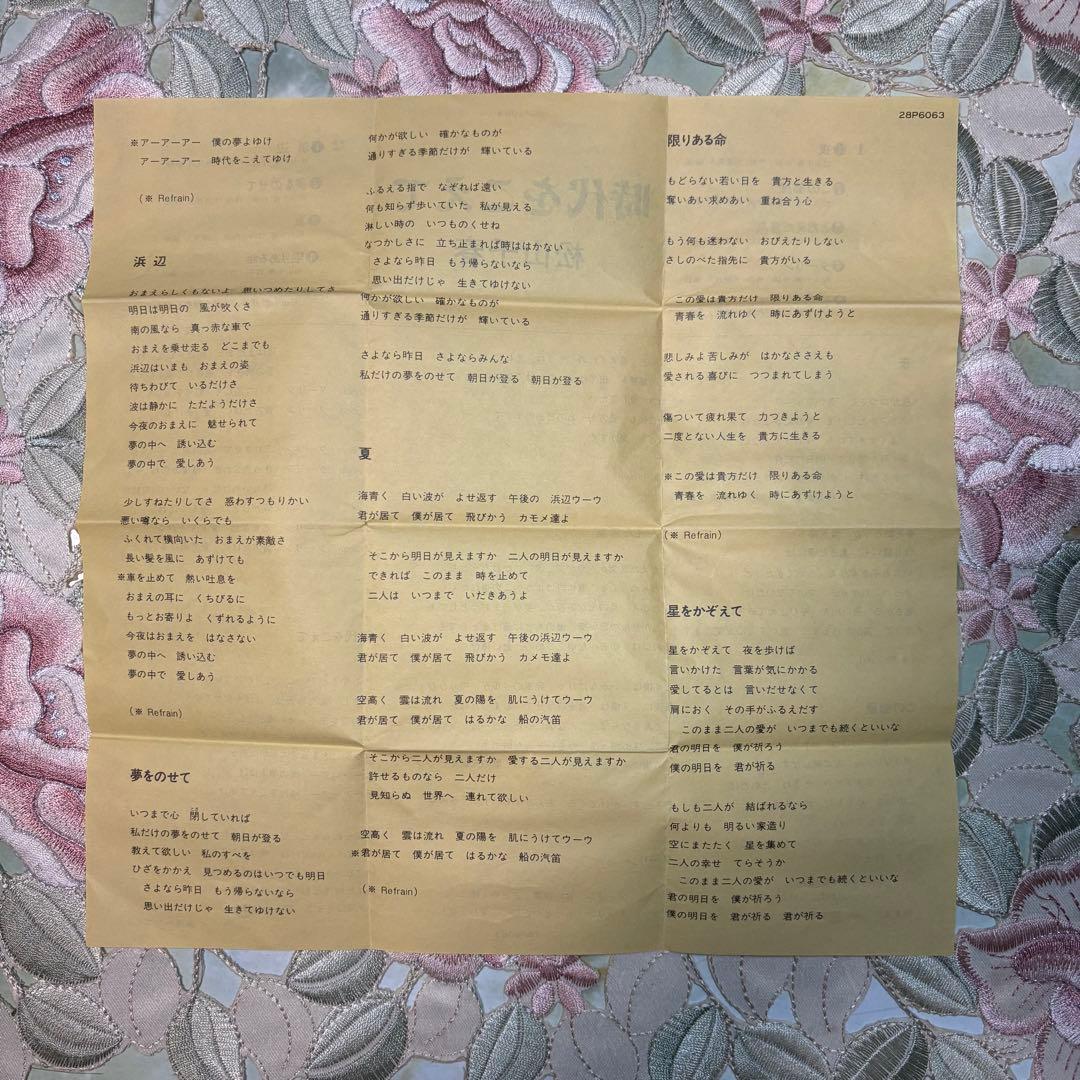 ※アーアーアー　僕の夢よゆけ
アーアーアー　時代をこえてゆけ
(※ Refrain)
浜辺
おまえらしくもないよ　思いつめたりしてさ
明日は明日の　風が吹くさ
南の風なら　真っ赤な車で
おまえを乗せ走る　どこまでも
浜辺はいまも　おまえの姿
待ちわびて　いるだけさ
波は静かに　ただようだけさ
今夜のおまえに　魅せられて
夢の中へ　誘い込む
夢の中で　愛しあう
少しすねたりしてさ　惑わすつもりかい
悪い噂なら　いくらでも
ふくれて横向いた　おまえが素敵さ
長い髪を風に　あずけても
※車を止めて　熱い吐息を
おまえの耳に　くちびるに
もっとお寄りよ　くずれるように
今夜はおまえを　はなさない
夢の中へ　誘い込む
夢の中で　愛しあう
(※ Refrain)
夢をのせて
いつまで心　閉していれば
私だけの夢をのせて　朝日が登る
教えて欲しい　私のすべを
ひざをかかえ　見つめるのはいつでも明日
さよなら昨日　もう帰らないなら
思い出だけじゃ　生きてゆけない
何かが欲しい　確かなものが
通りすぎる季節だけが　輝いている
ふるえる指で　なぞれば遠い
何も知らず歩いていた　私が見える
淋しい時の　いつものくせね
なつかしさに　立ち止まれば時ははかない
さよなら昨日　もう帰らないなら
思い出だけじゃ　生きてゆけない
何かが欲しい　確かなものが
通りすぎる季節だけが　輝いている
さよなら昨日　さよならみんな
私だけの夢をのせて　朝日が登る　朝日が登る
夏
海青く　白い波が　よせ返す　午後の　浜辺ウーウ
君が居て　僕が居て　飛びかう　カモメ達よ
そこから明日が見えますか　二人の明日が見えますか
できれば　このまま　時を止めて
二人は　いつまで　いだきあうよ
海青く　白い波が　よせ返す　午後の浜辺ウーウ
君が居て　僕が居て　飛びかう　カメモ達よ
空高く　雲は流れ　夏の陽を　肌にうけてウーウ
君が居て　僕が居て　はるかな　船の汽笛
そこから二人が見えますか　愛する二人が見えますか
許せるものなら　二人だけ
見知らぬ　世界へ　連れて欲しい
空高く　雲は流れ　夏の陽を　肌にうけてウーウ
※君が居て　僕が居て　はるかな　船の汽笛
(※ Refrain)
28P6063
限りある命
もどらない若い日を　貴方と生きる
奪いあい求めあい　重ね合う心
もう何も迷わない　おびえたりしない
さしのべた指先に　貴方がいる
この愛は貴方だけ　限りある命
青春を　流れゆく　時にあずけようと
悲しみよ苦しみが　はかなささえも
愛される喜びに　つつまれてしまう
傷ついて疲れ果て　力つきようと
二度とない人生を　貴方に生きる
※この愛は貴方だけ　限りある命
青春を　流れゆく　時にあずけようと
(※ Refrain)
星をかぞえて
星をかぞえて　夜を歩けば
言いかけた　言葉が気にかかる
愛してるとは　言いだせなくて
肩におく　その手がふるえだす
このまま二人の愛が　いつまでも続くといいな
君の明日を　僕が祈ろう
僕の明日を　君が祈る
もしも二人が　結ばれるなら
何よりも　明るい家造り
空にまたたく　星を集めて
二人の幸せ　てらそうか
このまま二人の愛が　いつまでも続くといいな
君の明日を　僕が祈ろう
僕の明日を　君が祈る　君が祈る